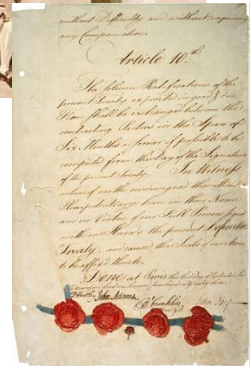 without Difficulty and without requiring
any Compensation.
Article 10th
The solemn Ratifications of the
present Treaty expedited in good & due
Form shall be exchanged between the
contracting Parties in the Space of
Six Months or sooner if possible to be
computed from the Day of the Signature
of the present Treaty. In Witness
whereof we the undersigned their Ministers
Plenipotentiary have in their Name
and in Virtue of our Full Powers signed
with our Hands the present Definitive
Treaty, and caused the Seals of our Arms
to be affixed thereto.
Done at Paris, this third Day of September
John Adams
B Franklin
John Jay